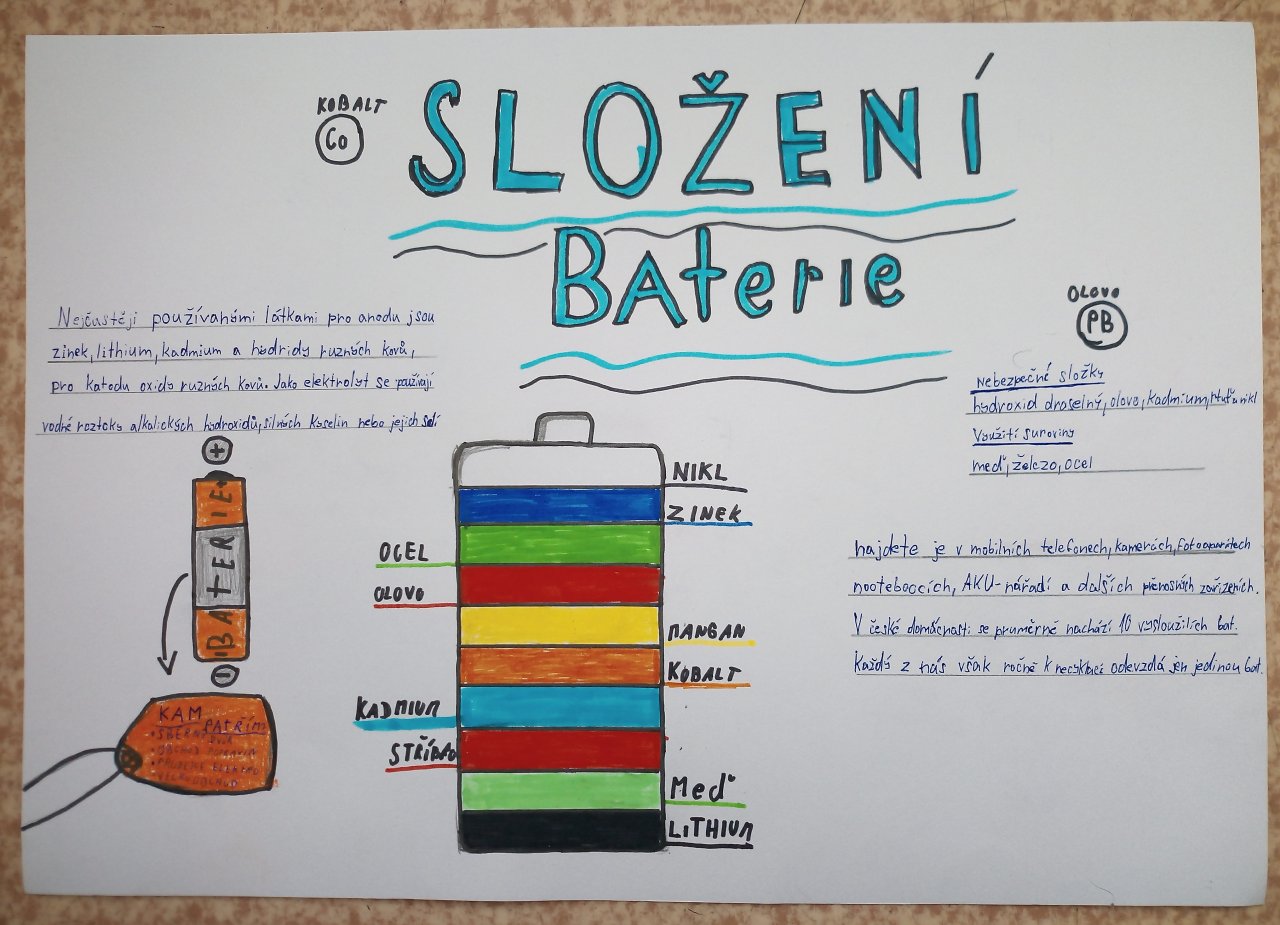 KOBALT
Co
SLOŽENÍ
BAterie
Nejčastěji používanými látkami pro anodu jsou
zinek, lithium, kadmium a hydridy ruzných kovů,
pro katodu oxidy ruzných kovů. Jako elektrolyt se používají
vodné roztoky alkalických hydroxidů, silných kyselin nebo jejich solí
OLOVO
PB
Nebezpečné složky
hydroxid draselný, olovo, kadmium, rtuť a nikl
Využití suroviny
meď, železo, ocel
+
BATERIE
-
KAM PATŘÍM
• SBĚRNÝ DVŮR
NIKL
ZINEK
OCEL
OLOVO
MANGAN
KOBALT
KADMIUM
STŘÍBRO
Meď
LiTHIUM
najdete je v mobilních telefonech, kamerách, fotoaparátech
nooteboocích, AKU-nářadí a dalších přenosných zařízeních.
V české domácnosti se pruměrně nachází 10 vysloužilých bat.
Každý z nás však ročně k recyklaci odevzdá jen jedinou bat.